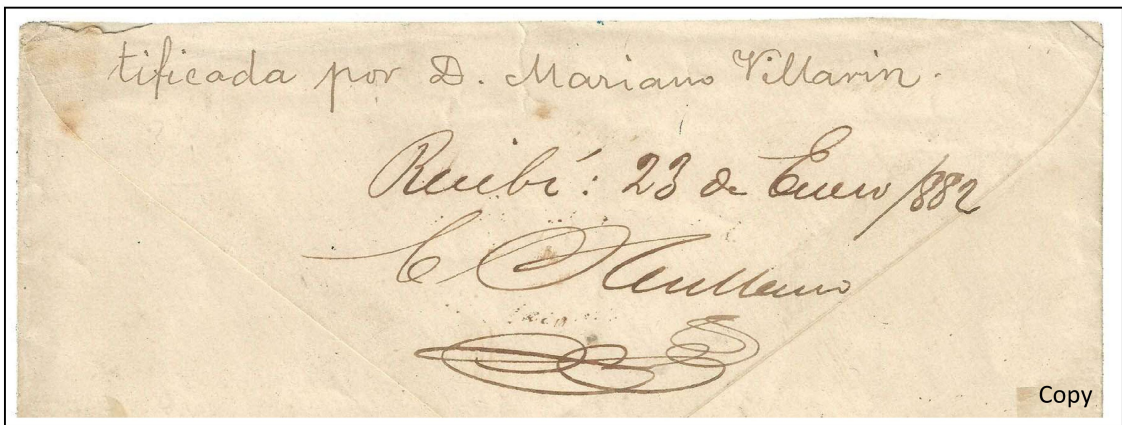 tificada por D. Mariano Villarin.
Recibí: 23 de Enero /882
C
Copy